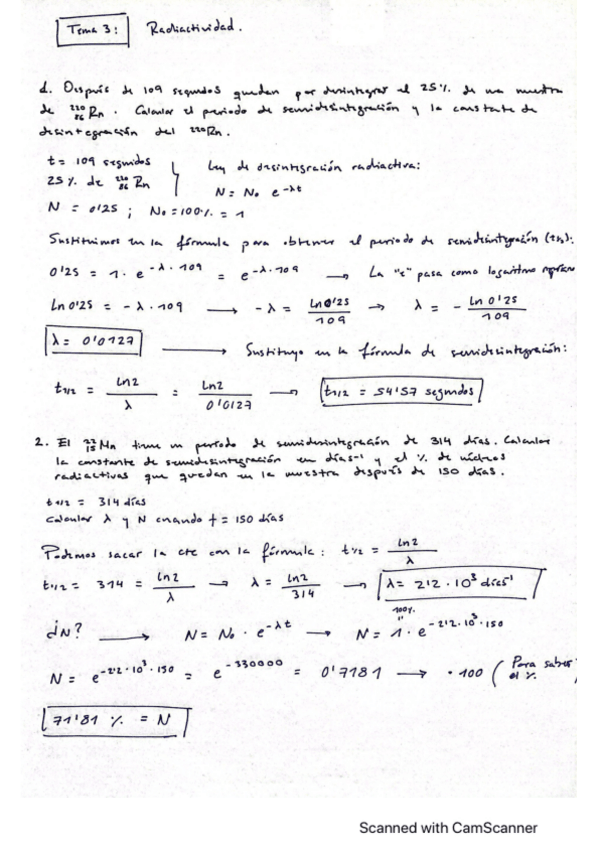 Tema 3: Radiactividad.
1. Después de 109 segundos quedan por desintegrar el 25% de una muestra
de ²²⁰₈₆Rn. Calcular el periodo de semidesintegración y la constante de
desintegración del ²²⁰Rn.
t = 109 segundos
25% de ²²⁰₈₆Rn
Ley de desintegración radiactiva:
N = N₀ e^-λt
N = 0'25 ; N₀ = 100% = 1
Sustituimos en la fórmula para obtener el periodo de semidesintegración (t½):
0'25 = 1 · e^-λ·109 = e^-λ·109 → La "e" pasa como logaritmo
Ln 0'25 = -λ · 109 → -λ = Ln 0'25 / 109 → λ = - Ln 0'25 / 109
λ = 0'0127 → Sustituyo en la fórmula de semidesintegración:
t1/2 = Ln2 / λ = Ln2 / 0'0127 → t1/2 = 54'57 segundos
2. El Mn tiene un periodo de semidesintegración de 314 días. Calcular
la constante de semidesintegración en días⁻¹ y el % de núcleos
radiactivos que quedan en la muestra después de 150 días.
t1/2 = 314 días
Calcular λ y N cuando t = 150 días
Podemos sacar la cte con la fórmula: t1/2 = Ln2 / λ
t1/2 = 314 = Ln2 / λ → λ = Ln2 / 314 → λ = 2'2 · 10³ días⁻¹
¿N? → N = N₀ · e^-λt → N = 1 · e^-2'2·10³·150
100%
"
N = e^-2'2·10³·150 = e^-330000 = 0'7181 → ·100 (Para saber
el %
71'81 % = N
Scanned with CamScanner